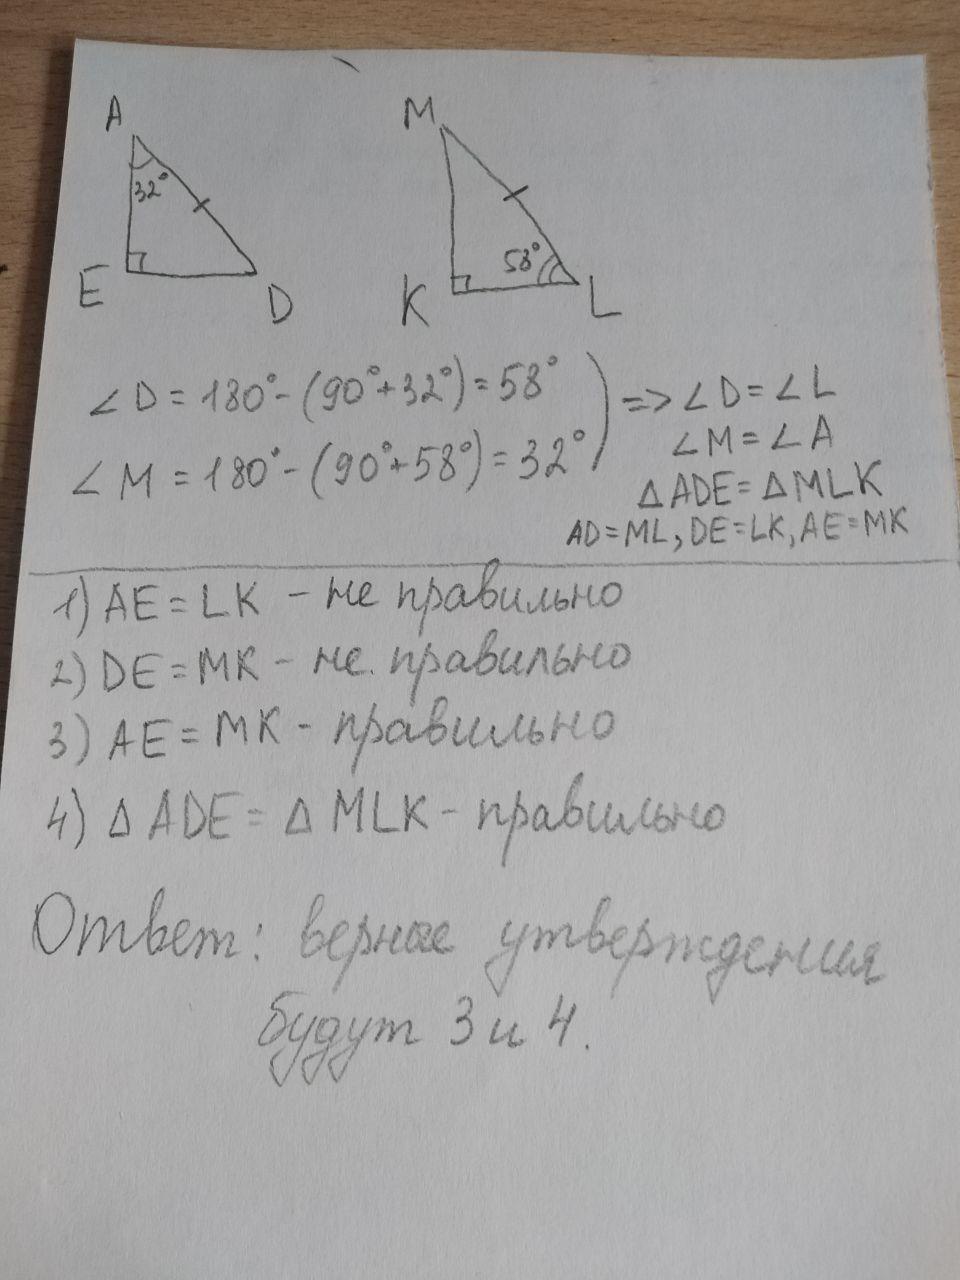 A
M
32°
58°
E
D
K
L
∠D = 180° - (90° + 32°) = 58° ) => ∠D = ∠L
∠M = 180° - (90° + 58°) = 32°
∠M = ∠A
△ADE = △MLK
AD = ML, DE = LK, AE = MK
1) AE = LK - не правильно
2) DE = MK - не. правильно
3) AE = MK - правильно
4) △ ADE = △ MLK - правильно
Ответ: верные утверждения
будут 3 и 4.